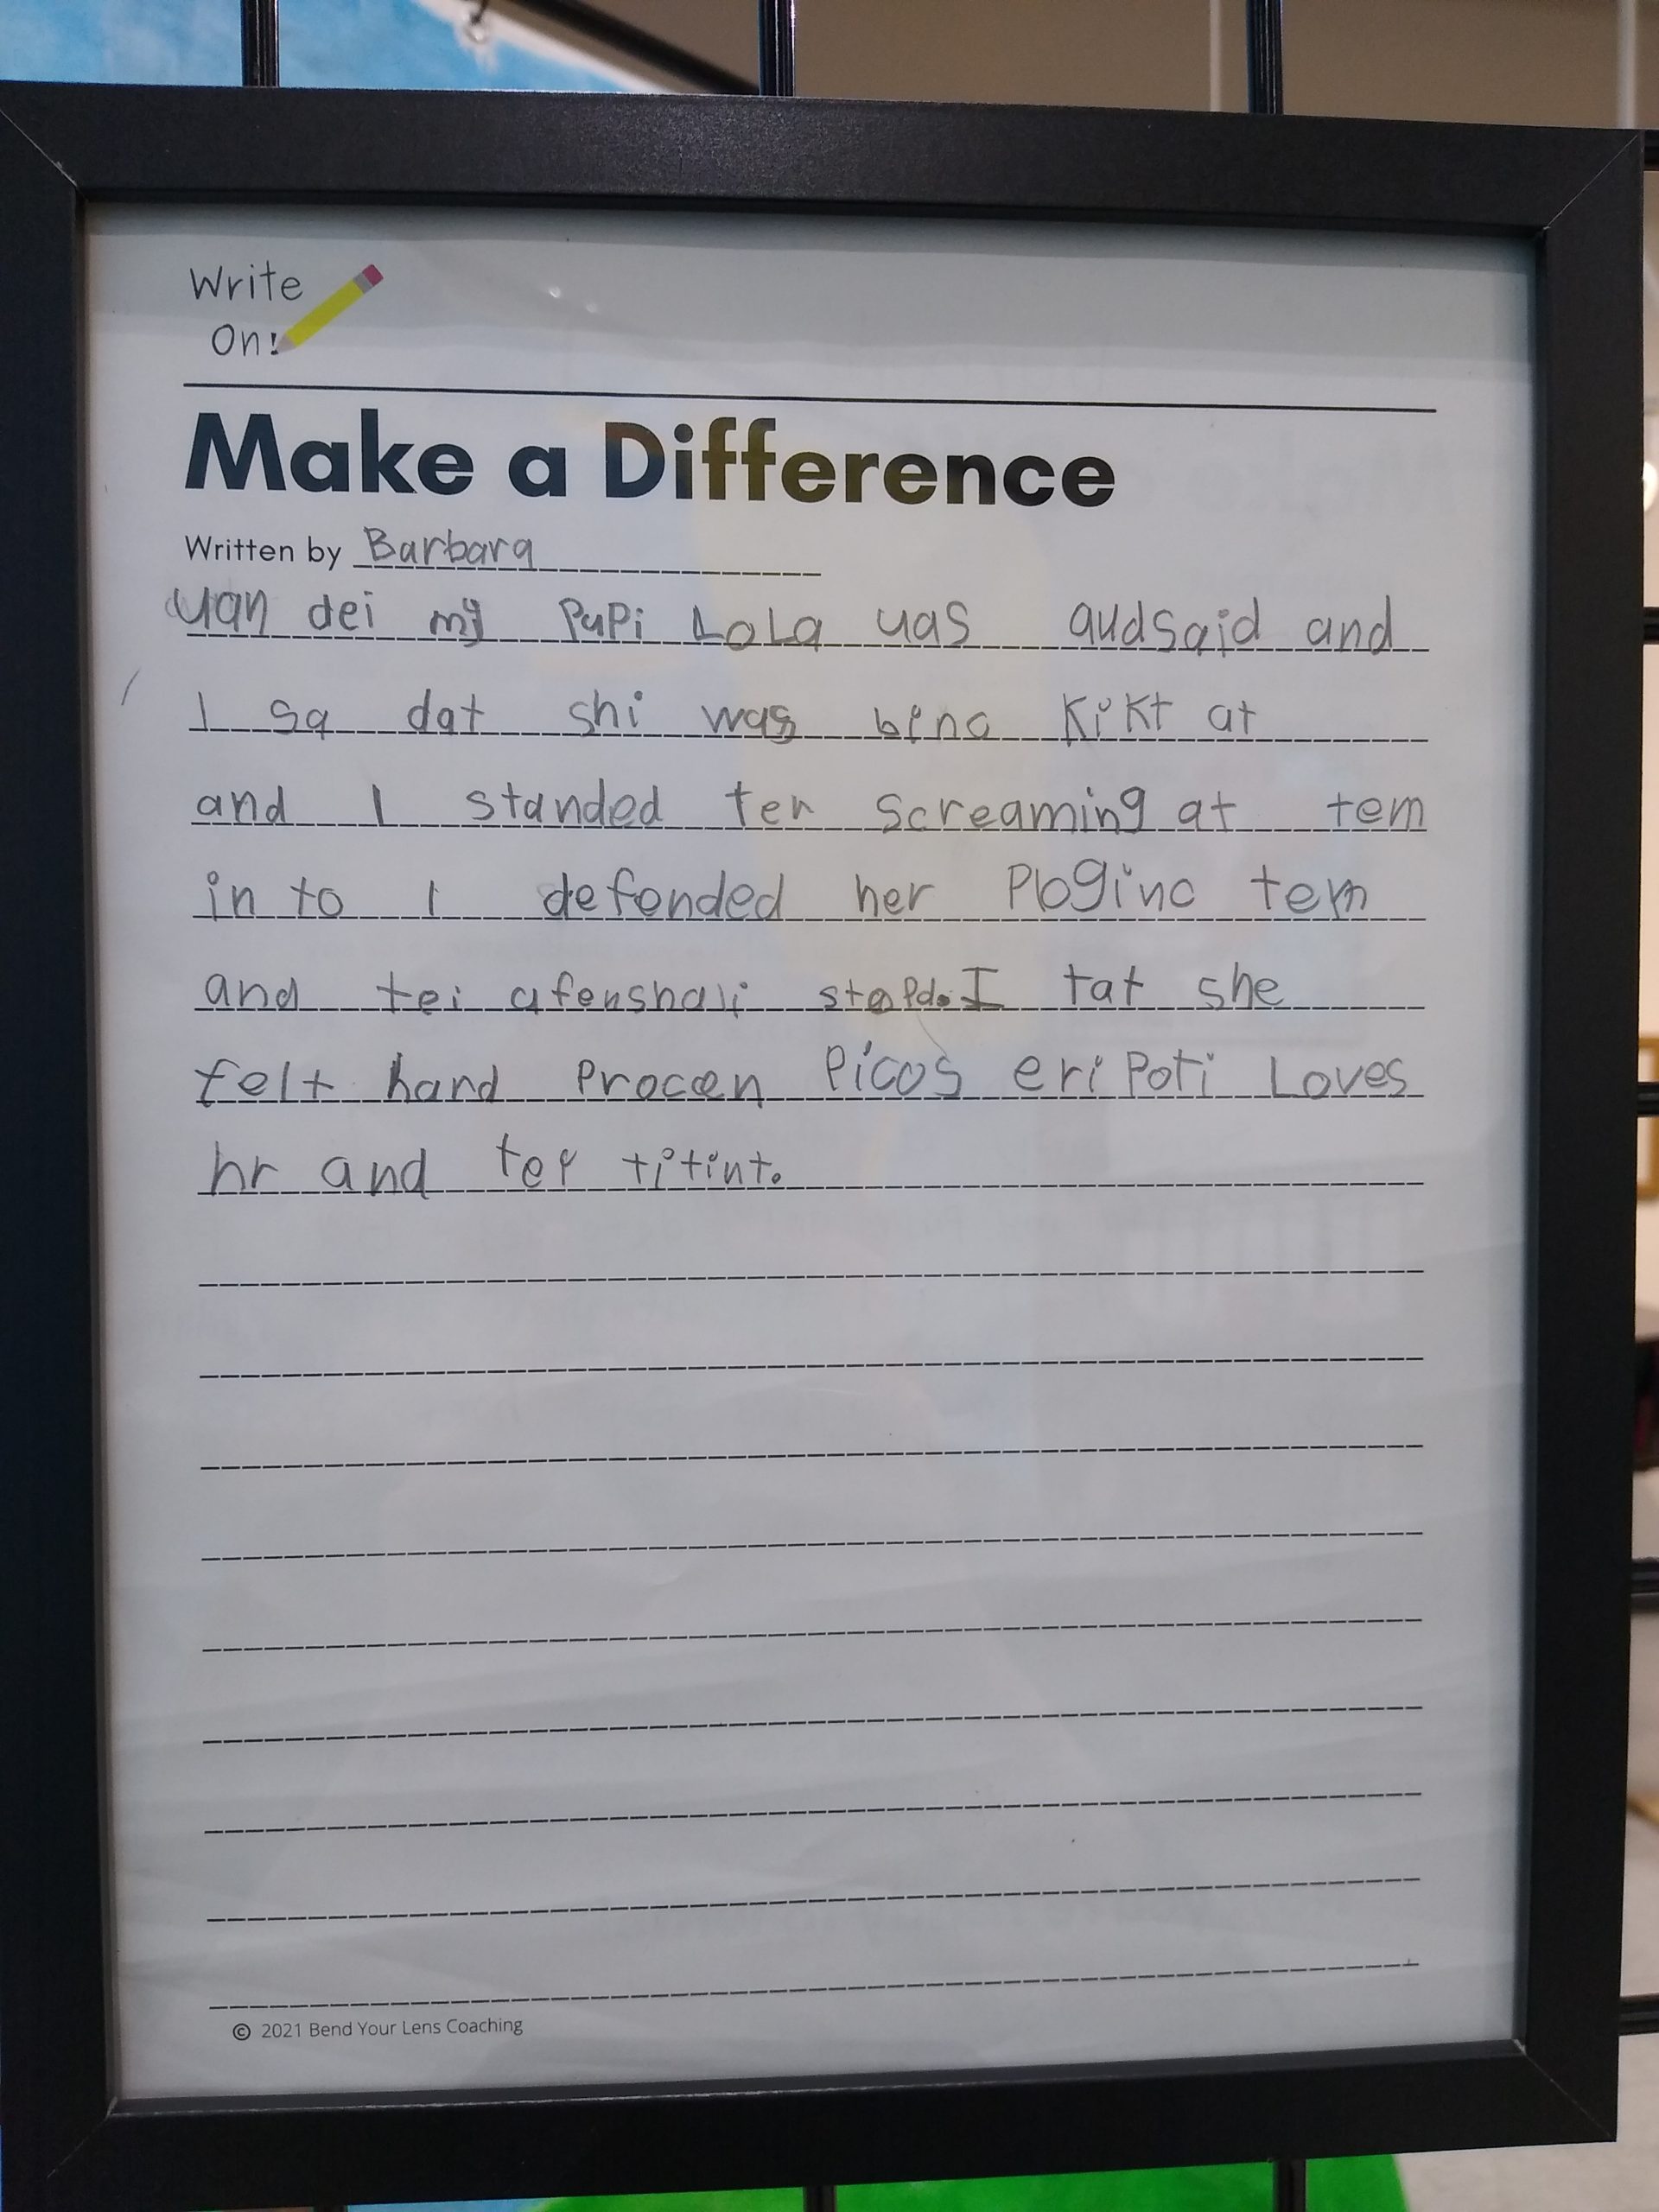 Write
On!
Make a Difference
Written by Barbara
uan dei my PuPi LoLa uas audsaid and
I sa dat shi was bina KiKt at
and I standed ter screaming at tem
in to I defended her Ploginc tem
and tei afenshali stopd. I tat she
felt hard Procen Picos eri Poti Loves
hr and tei titint.
© 2021 Bend Your Lens Coaching